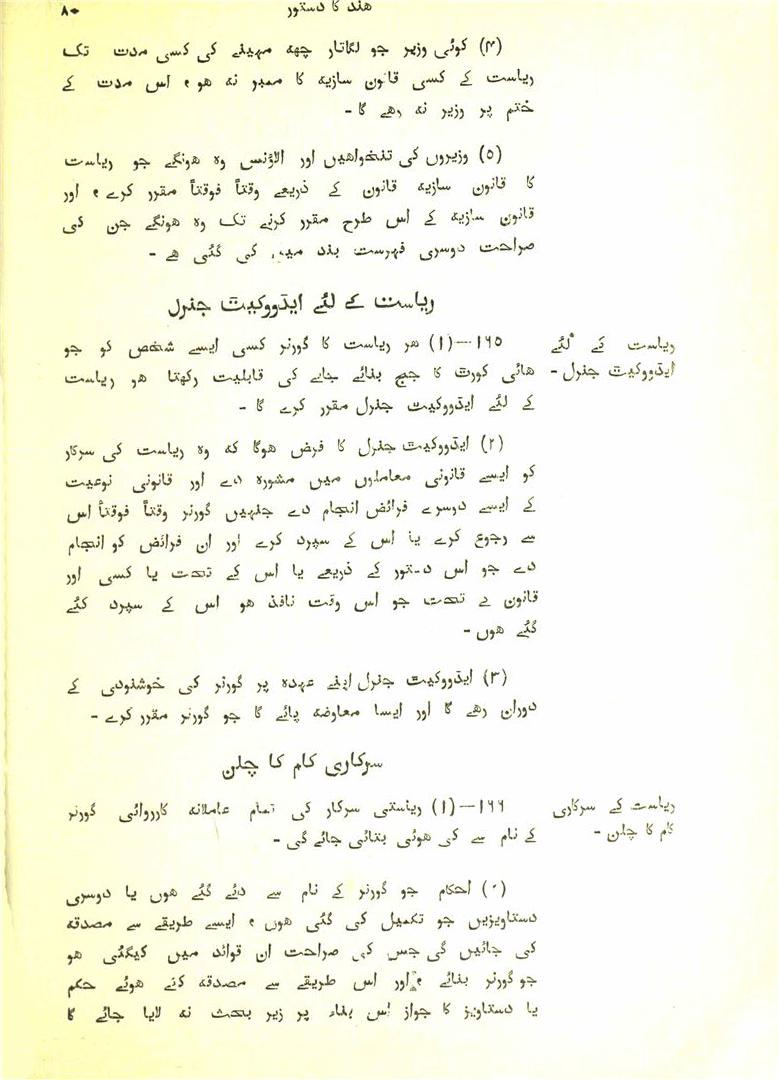 ہند کا دستور
۸۰
(۴) کوئی وزیر جو لگاتار چھہ مہینے کی کسی مدت تک
ریاست کے کسی قانون سازیہ کا ممبر نہ ہو، اس مدت کے
ختم پر وزیر نہ رہے گا۔
(۵) وزیروں کی تنخواہیں اور الاؤنس وہ ہونگے جو ریاست
کا قانون سازیہ قانون کے ذریعے وقتاً فوقتاً مقرر کرے، اور
قانون سازیہ کے اس طرح مقرر کرنے تک وہ ہونگے جن کی
صراحت دوسری فہرست بند میں کی گئی ہے۔
ریاست کے لئے ایڈووکیٹ جنرل
ریاست کے لئے
ایڈووکیٹ جنرل۔
۱۶۵—(۱) ہر ریاست کا گورنر کسی ایسے شخص کو جو
ہائی کورٹ کا جج بنائے جانے کی قابلیت رکھتا ہو ریاست
کے لئے ایڈووکیٹ جنرل مقرر کرے گا۔
(۲) ایڈووکیٹ جنرل کا فرض ہوگا کہ وہ ریاست کی سرکار
کو ایسے قانونی معاملوں میں مشورہ دے اور قانونی نوعیت
کے ایسے دوسرے فرائض انجام دے جنہیں گورنر وقتاً فوقتاً اس
سے رجوع کرے یا اس کے سپرد کرے اور ان فرائض کو انجام
دے جو اس دستور کے ذریعے یا اس کے تحت یا کسی اور
قانون کے تحت جو اس وقت نافذ ہو اس کے سپرد کئے
گئے ہوں۔
(۳) ایڈووکیٹ جنرل اپنے عہدہ پر گورنر کی خوشنودی کے
دوران رہے گا اور ایسا معاوضہ پائے گا جو گورنر مقرر کرے۔
سرکاری کام کا چلن
ریاست کے سرکاری
کام کا چلن۔
۱۶۶—(۱) ریاستی سرکار کی تمام عاملانہ کارروائی گورنر
کے نام سے کی ہوئی بتائی جائے گی۔
(۲) احکام جو گورنر کے نام سے دئے گئے ہوں یا دوسری
دستاویزیں جو تکمیل کی گئی ہوں، ایسے طریقے سے مصدقہ
کی جائیں گی جس کی صراحت ان قوائد میں کیگئی ہو
جو گورنر بنائے، اور اس طریقے سے مصدقہ کئے ہوئے حکم
یا دستاویز کا جواز اس بناء پر زیر بحث نہ لایا جائے گا